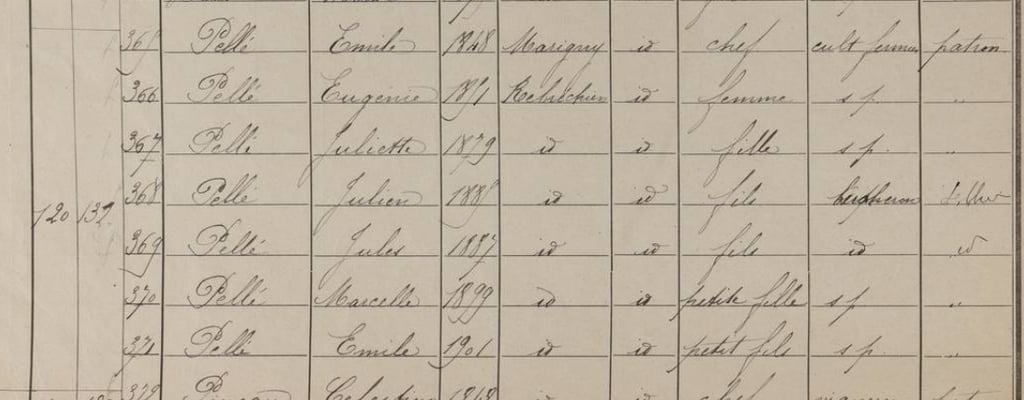 365 Pellé Emile 1848 Marigny id chef cult fermier patron
366 Pellé Eugénie 1851 Rebréchien id femme s p. "
367 Pellé Juliette 1879 id id fille s p. "
368 Pellé Julien 1885 id id fils
120 132
369 Pellé Jules 1887 id id fils id id
370 Pellé Marcelle 1899 id id petite fille s p "
371 Pellé Emile 1901 id id petit fils s p. "
372 Celestine 1848 id id chef